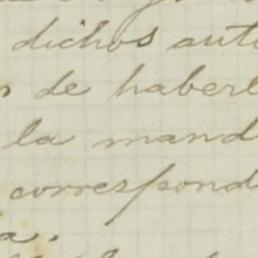 dichos aut
de haberl
la mand
correspond
a.